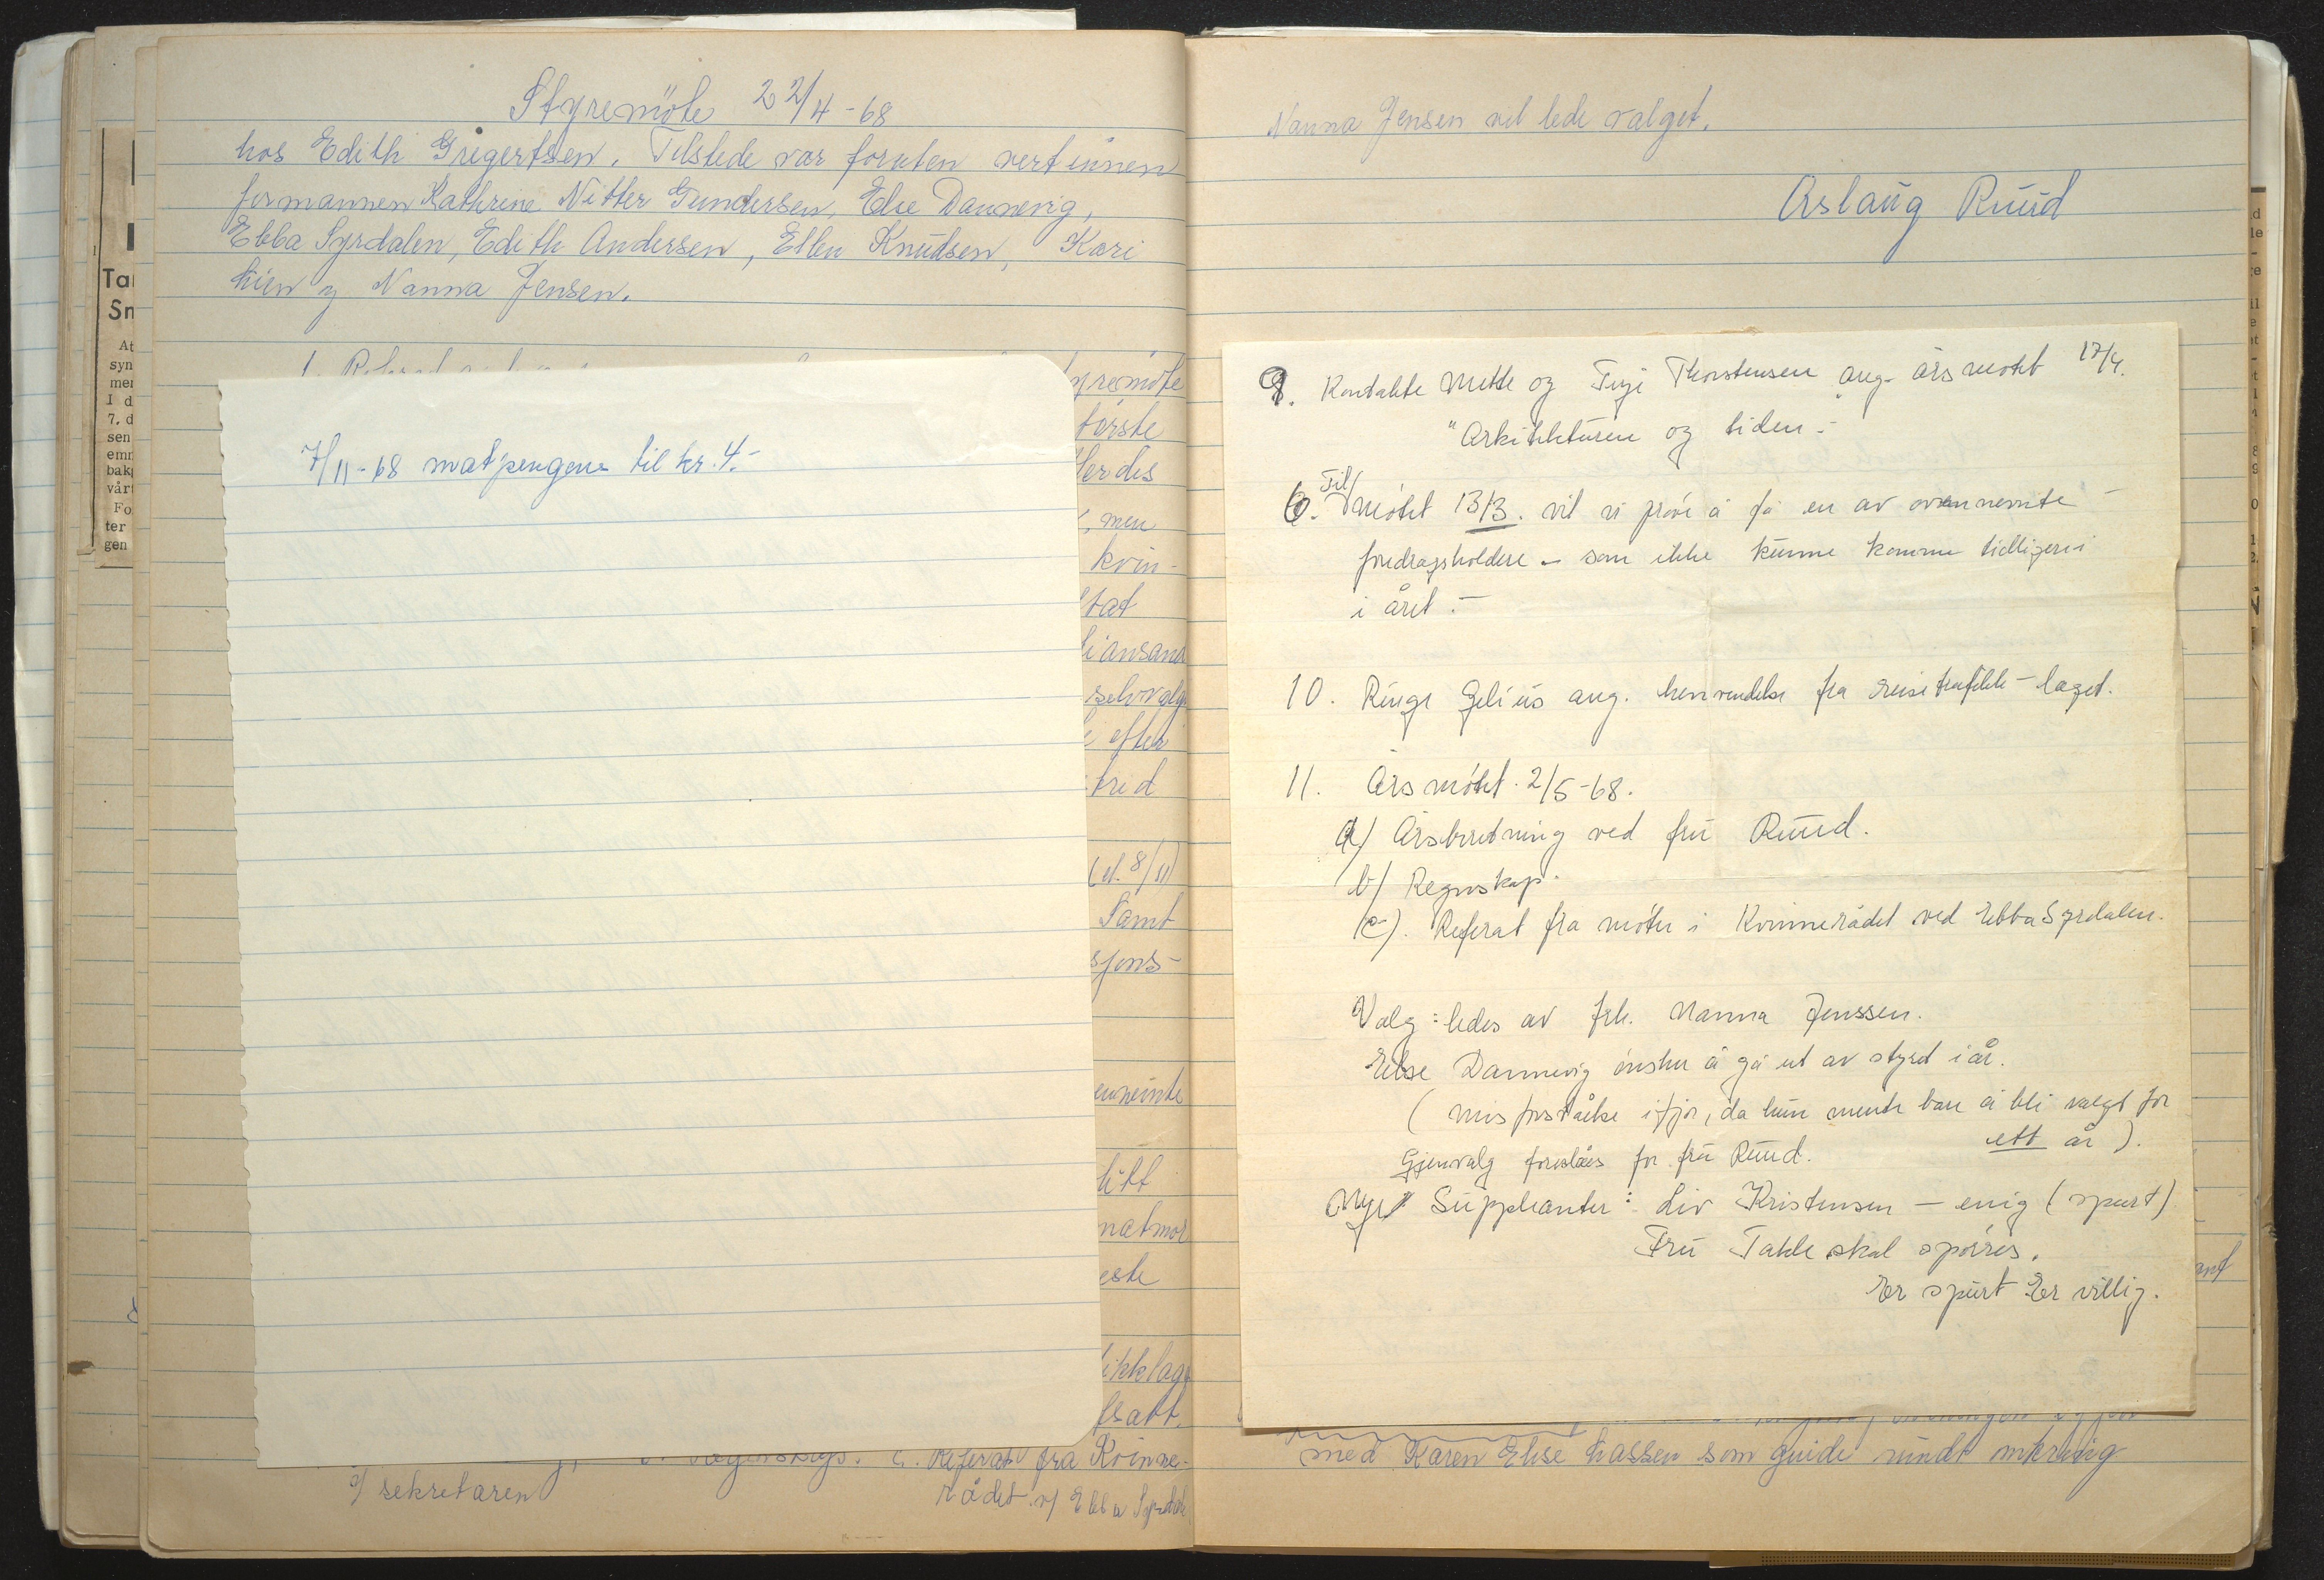 Styremöte 22/4-68
hos Edith Gregertsen. Tilstede var foruten vertinnen
formannen Kathrine Nitter Gundersen, Else Dannevig,
Ebba Syrdalen, Edith Andersen, Ellen Knudsen, Kari
Lien og Nanna Jensen.
yremöte
förste
, men
kvin-
tat
iansand
selvvalg
efter
8/11)
Samt
sjons-
litt
natmor
este
ikklag
fsatt.
c. Referat fra Kvinne-
rådet v/ Ebba Syrdale
v/ sekretæren
7/11-68 matpengene til kr. 4.-
Nanna Jensen vil lede valget.
Aslaug Ruud
9. Kontakte Mette og Terje Thorstensen ang. årsmøtet 17/4.
"Arkitekturen og tiden.-
6. Til møtet 13/3. vil vi prøve å få en av ovennevnte
foredragsholdere - som ikke kunne komme tidligere i
i året.-
10. Ringe Gelius ang. henvendelse fra reisetrafikk-laget.
11. Årsmøtet. 2/5-68.
a) Årsberetning ved fru Ruud.
b) Regnskap.
c). Referat fra møter i Kvinnerådet ved Ebba Syrdalen.
Valg: ledes av frk. Nanna Jenssen.
Else Dannevig ønsker å gå ut av styret i år.
(misforståelse ifjor, da hun mente bare å bli valgt for
ett år).
Gjenvalg foreslåes for fru Ruud.
Nye Suppleanter: Liv Kristensen - enig (spurt)
Fru Takle skal spørres.
Er spurt Er villig.
med Karen Elise Lassen som guide rundt omkring
Ta
Sn
At
syn
mer
I d
7. d
sen
emn
bak
vårt
Fo
ter
gen